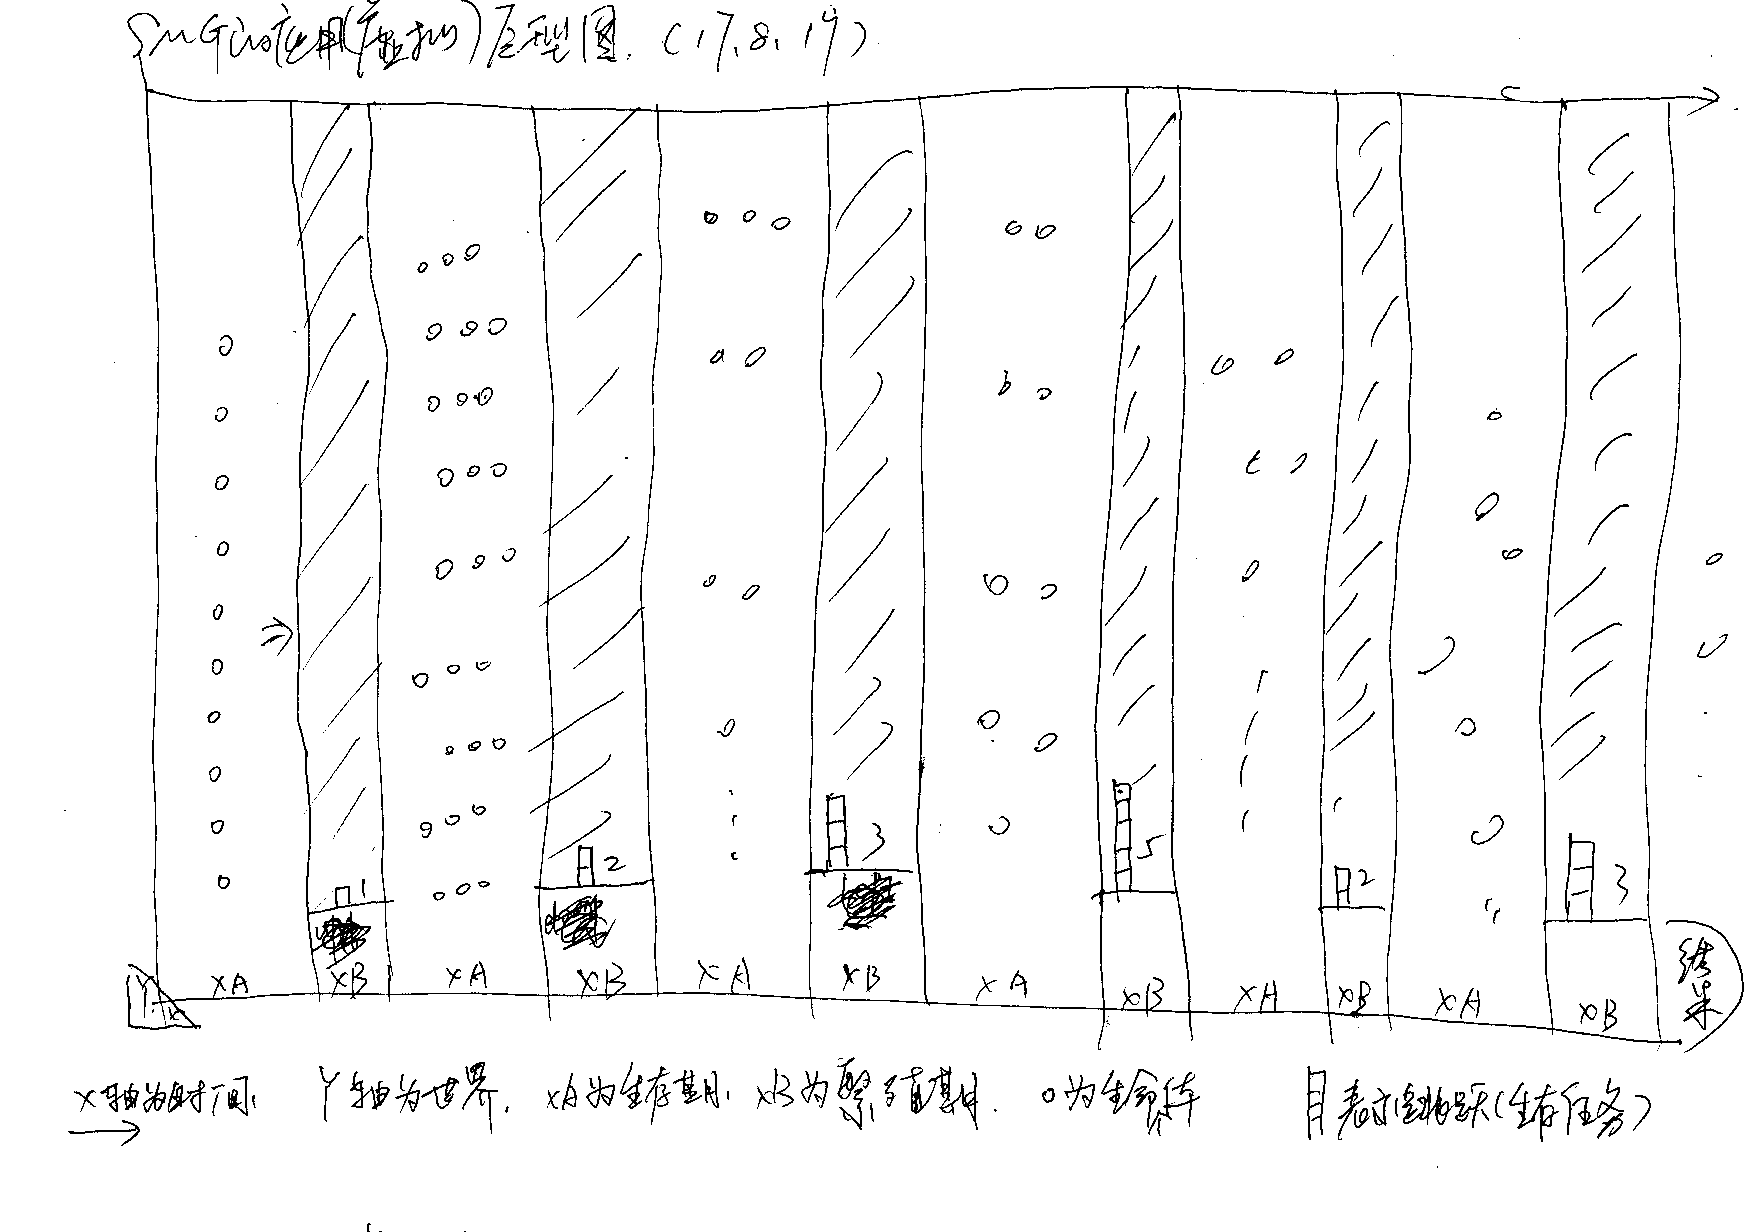 应用(虚拟)原型图. (17.8.19)
1
2
3
5
2
3
XA XB XA XB XA XB XA XB XA XB XA XB
Y X
结束
X轴为时间. Y轴为世界. XA为生存期. XB为繁殖期. o为生命体 目表示(生存任务)